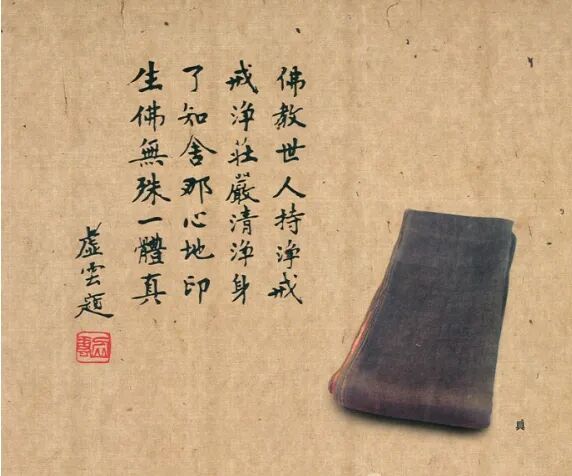 佛教世人持淨戒
戒淨莊嚴清淨身
了知舍那心地印
生佛無殊一體真
虛雲題
具